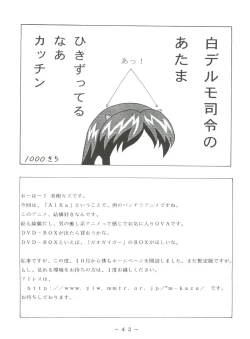 白デルモ司令の
あたま
あっ！
ひきずってる
なぁ
カッチン
1000きち
おーはー！ 名剣カズです。
今回は、「AIKa」ということで、例のパンチラアニメですね。
このアニメ、結構好きなんです。
絵も綺麗だし、男の癒し系アニメって感じでお気に入りOVAです。
DVD-BOXが出たら買おうかな。
DVD-BOXといえば、「ガオガイガー」のBOXがほしいな。
私事ですが、この度、10月から僕もホームページを開設しました。まだ暫定版ですが、
もし、見れる環境をお持ちの方は、1度お越しください。
アドレスは、
です。
お待ちしております。
-42-